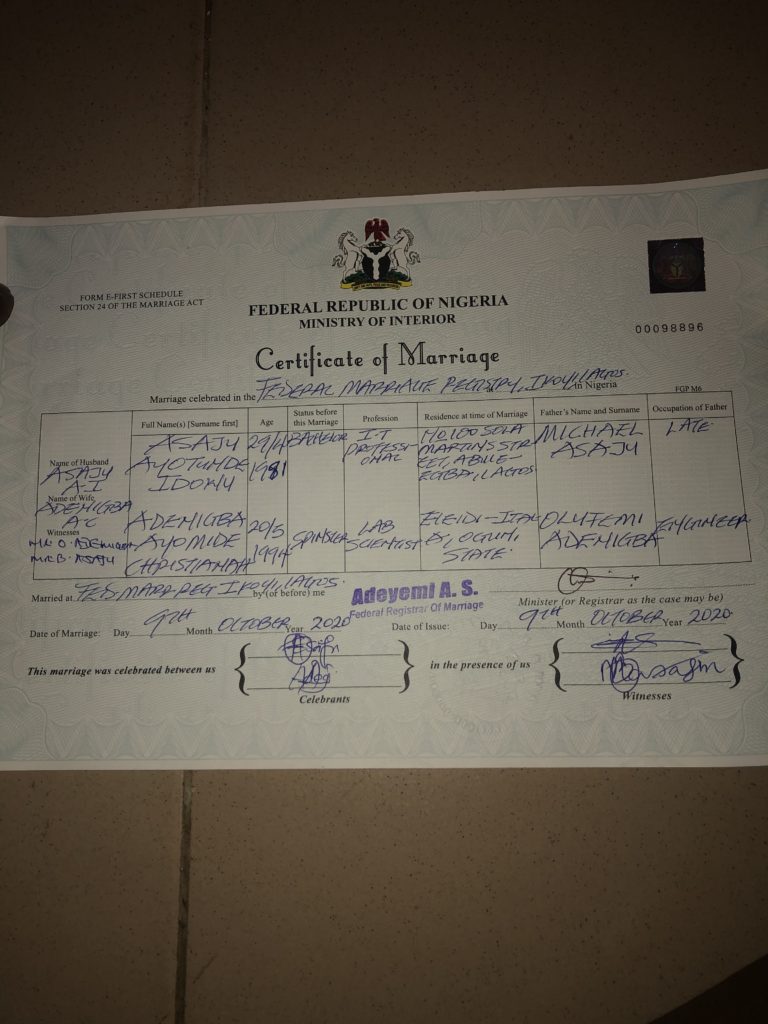 FORM E-FIRST SCHEDULE
SECTION 24 OF THE MARRIAGE ACT
FEDERAL REPUBLIC OF NIGERIA
MINISTRY OF INTERIOR
00098896
Certificate of Marriage
Marriage celebrated in the FEDERAL MARRIAGE REGISTRY, IKOYI, LAGOS. in Nigeria
FGP M6
Full Name(s) [Surname first] Age Status before this Marriage Profession Residence at time of Marriage Father's Name and Surname Occupation of Father
Name of Husband
ASAJU
A-I
ASAJU
AYOTUNDE
IDOWU
29/4
1981
BACHELOR
I.T
PROFESSI-
ONAL
NO 160 SOLA
MARTINS STR
EET, ABULE-
EGBA, LAGOS
MICHAEL
ASAJU
LATE
Name of Wife
ADEMIGBA
A-C
Witnesses
MR O. ADEMIGBA
MR B. ASAJU
ADEMIGBA
AYOMIDE
CHRISTIANAH
20/5
1994
SPINSTER
LAB
SCIENTIST
OGUN,
STATE
OLUFEMI
ADEMIGBA
ENGINEER
Married at FED MARR REG IKOYI, LAGOS. by (of before) me
Adeyemi A. S.
Federal Registrar Of Marriage
Minister (or Registrar as the case may be)
Date of Marriage: Day 9TH Month OCTOBER Year 2020 Date of Issue: Day 9TH Month OCTOBER Year 2020
This marriage was celebrated between us
Celebrants
in the presence of us
Witnesses